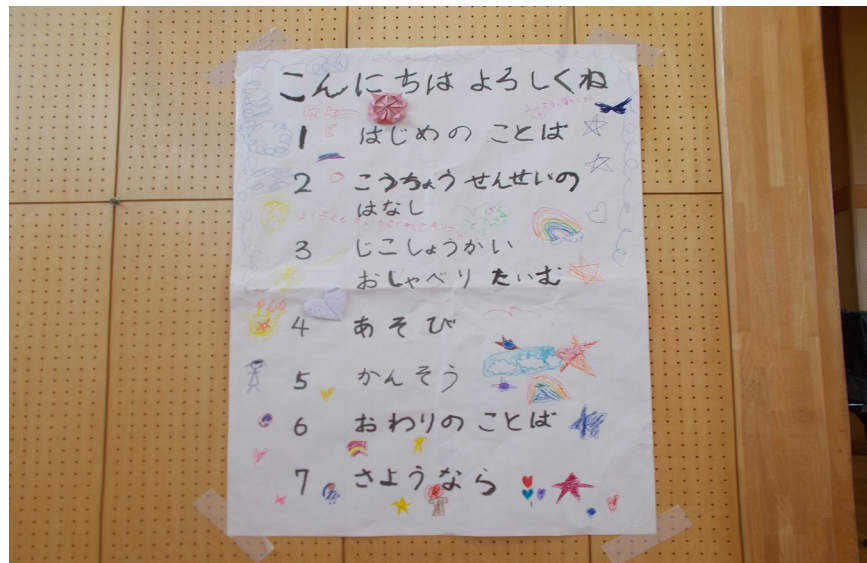 こんにちは よろしくね
1 はじめの ことば
2 こうちょう せんせいの
はなし
3 じこしょうかい
おしゃべり たいむ
4 あそび
5 かんそう
6 おわりの ことば
7 さようなら